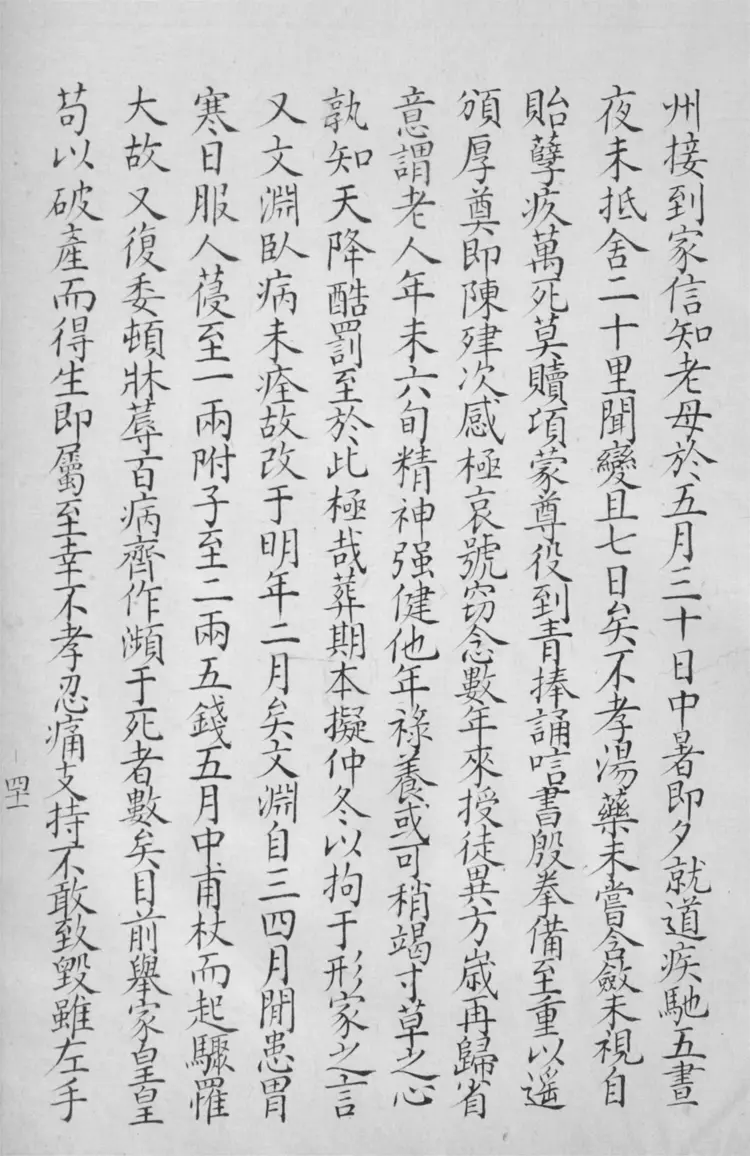 州接到家信知老母於五月三十日中暑即夕就道疾馳五晝
夜未抵舍二十里聞變且七日矣不孝湯藥未嘗含斂未視自
貽孽疚萬死莫贖項蒙尊役到青捧誦唁書殷拳備至重以遥
頒厚奠即陳肂次感極哀號窃念數年來授徒異方歲再歸省
意謂老人年未六旬精神强健他年祿養或可稍竭寸草之心
孰知天降酷罰至於此極哉葬期本擬仲冬以拘于形家之言
又文淵臥病未痊故改于明年二月矣文淵自三四月間患胃
寒日服人葠至一兩附子至二兩五錢五月中甫杖而起驟罹
大故又復委頓牀蓐百病齊作瀕于死者數矣目前舉家皇皇
苟以破產而得生即屬至幸不孝忍痛支持不敢致毀雖左手
四十一